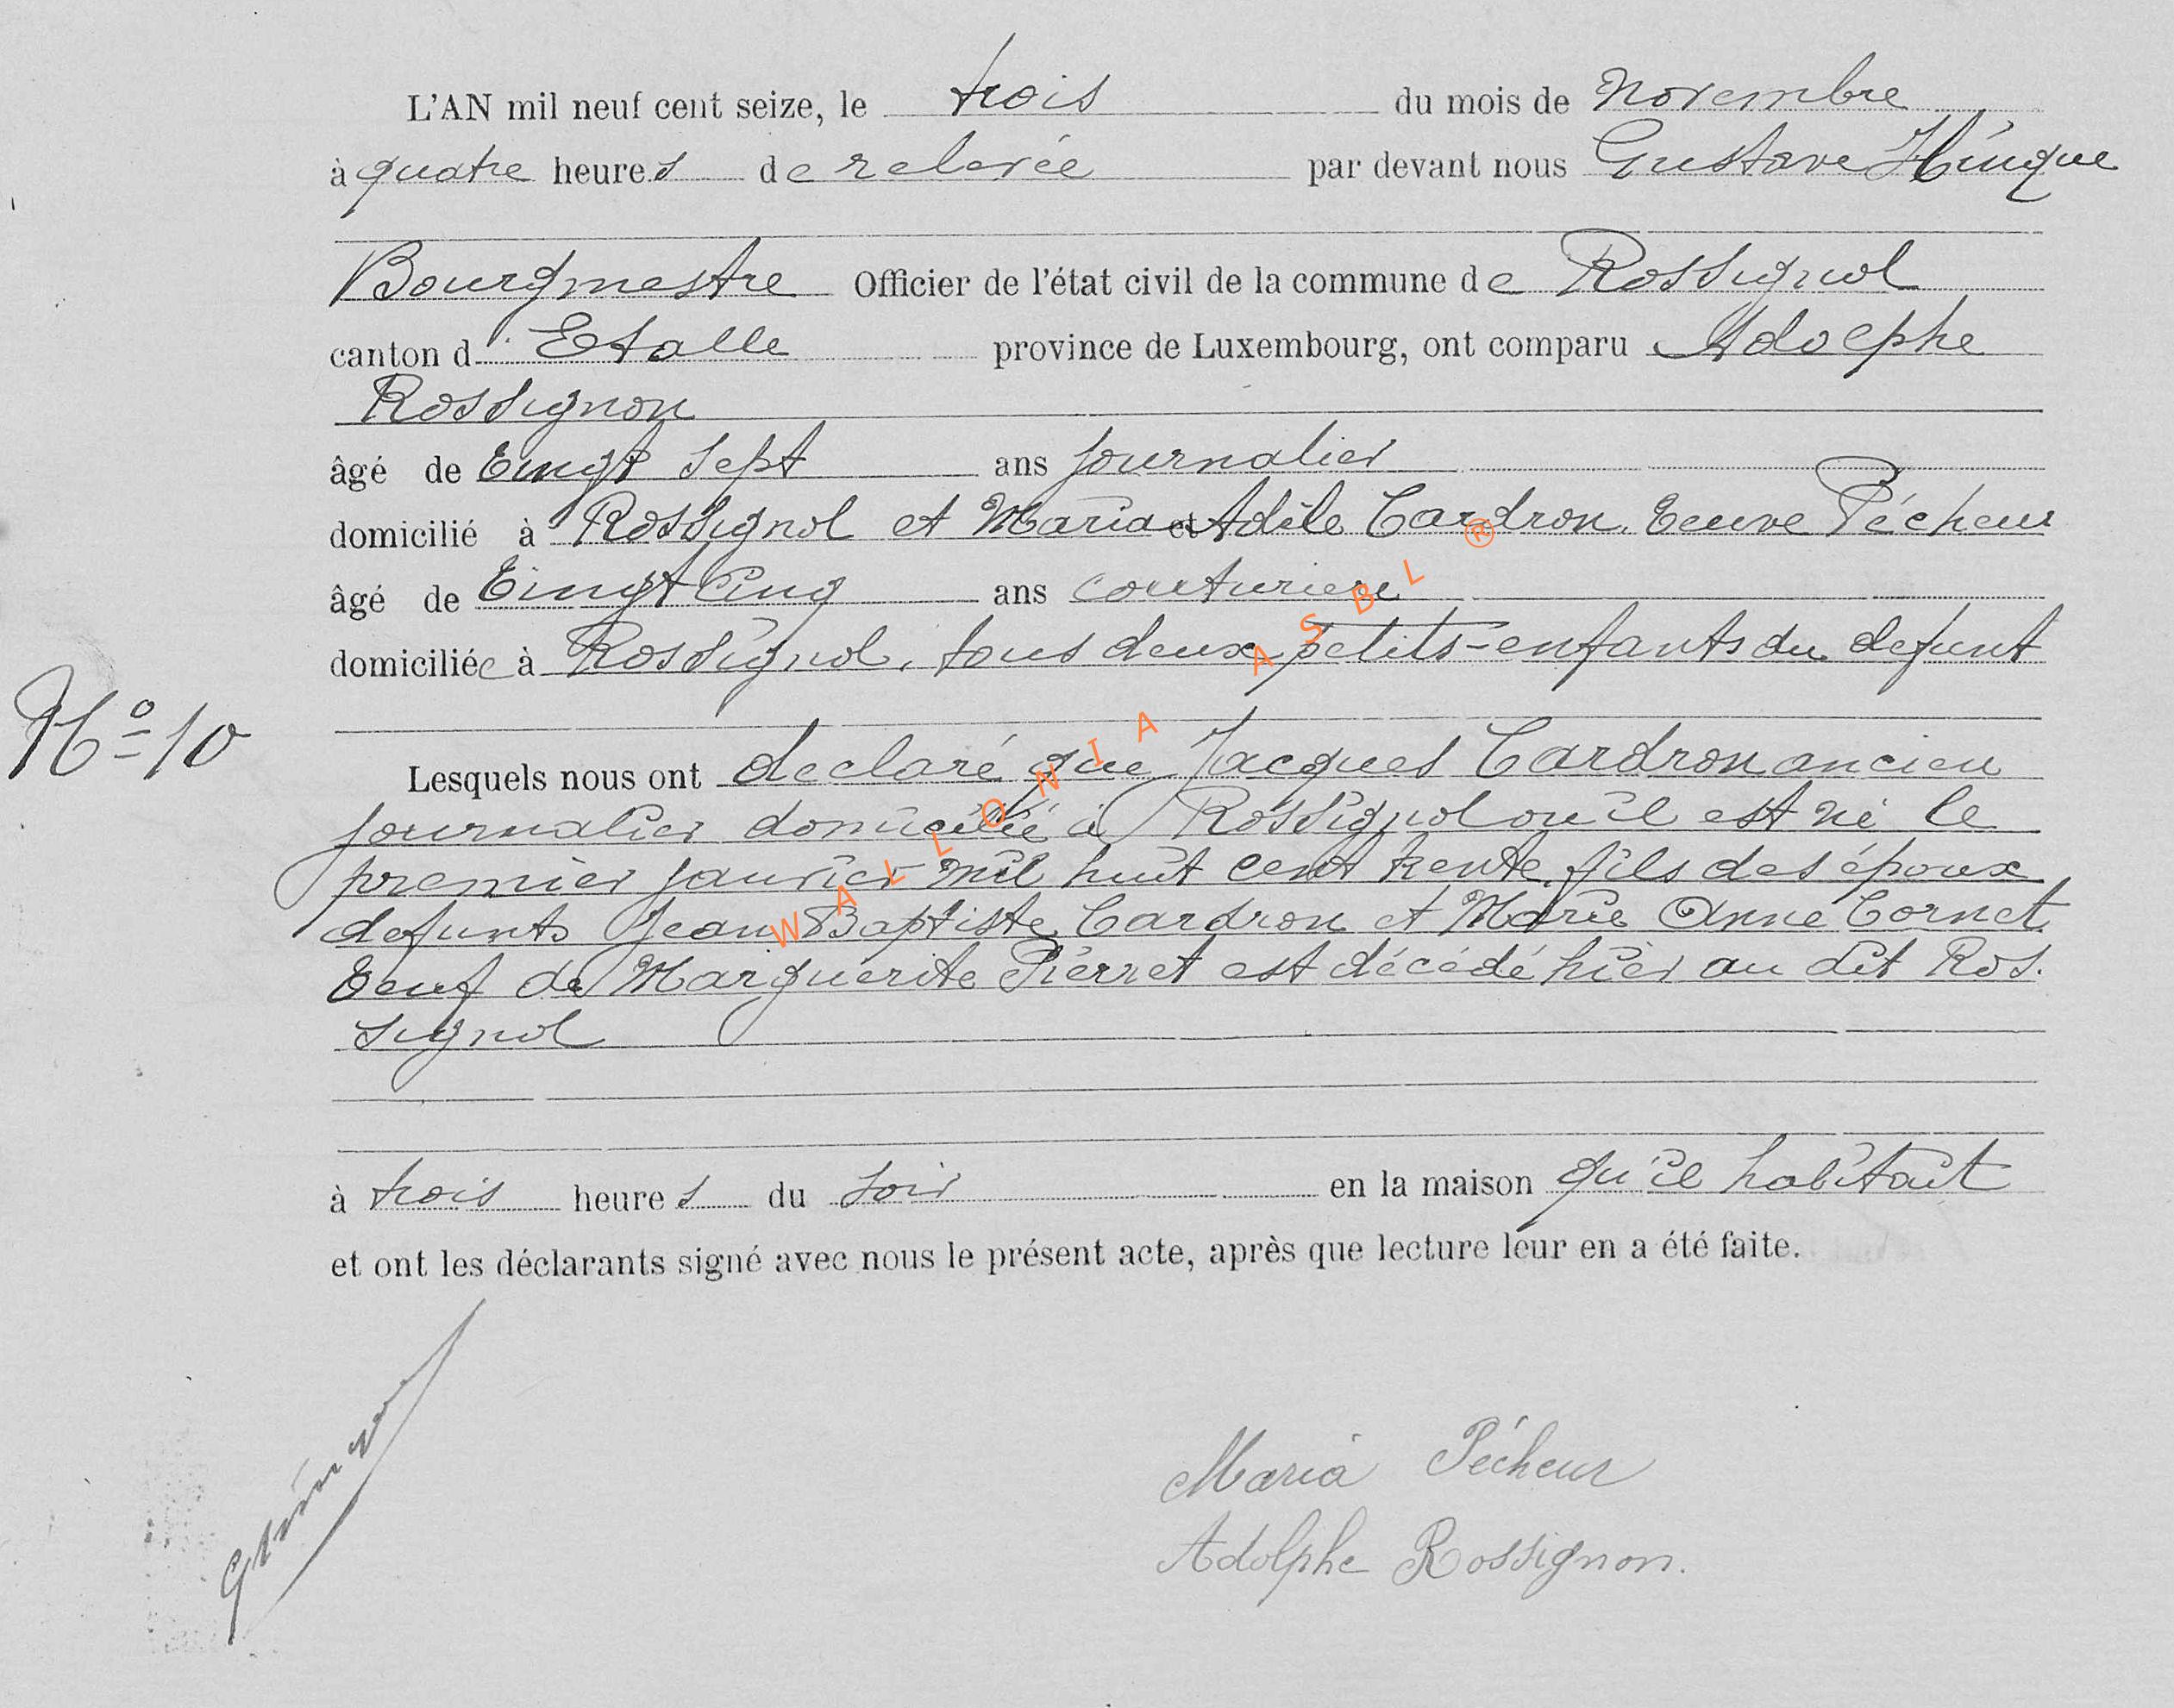 L'AN mil neuf cent seize, le trois du mois de Novembre
à quatre heures de relevée par devant nous Gustave Hinque
Bourgmestre Officier de l'état civil de la commune de Rossignol
canton d'Etalle province de Luxembourg, ont comparu Adolphe
Rossignon
âgé de Vingt sept ans journalier
domicilié à Rossignol et Maria et Adèle Cardron, Veuve Pécheur
âgé de Vingt Cinq ans couturiere
domiciliée à Rossignol, tous deux petits-enfants du defunt
No 10
Lesquels nous ont declaré que Jacques Cardron ancien
journalier domicilié à Rossignol ou il est né le
premier janvier mil huit cent trente, fils des époux
defunts Jean Baptiste Cardron et Marie Anne Cornet
Veuf de Marguerite Pierret est décédé hier au dit Ros.
signol
à trois heures du soir en la maison qu'il habitait
et ont les déclarants signé avec nous le présent acte, après que lecture leur en a été faite.
Maria Pécheur
Adolphe Rossignon.
WALLONIA ASBL ®